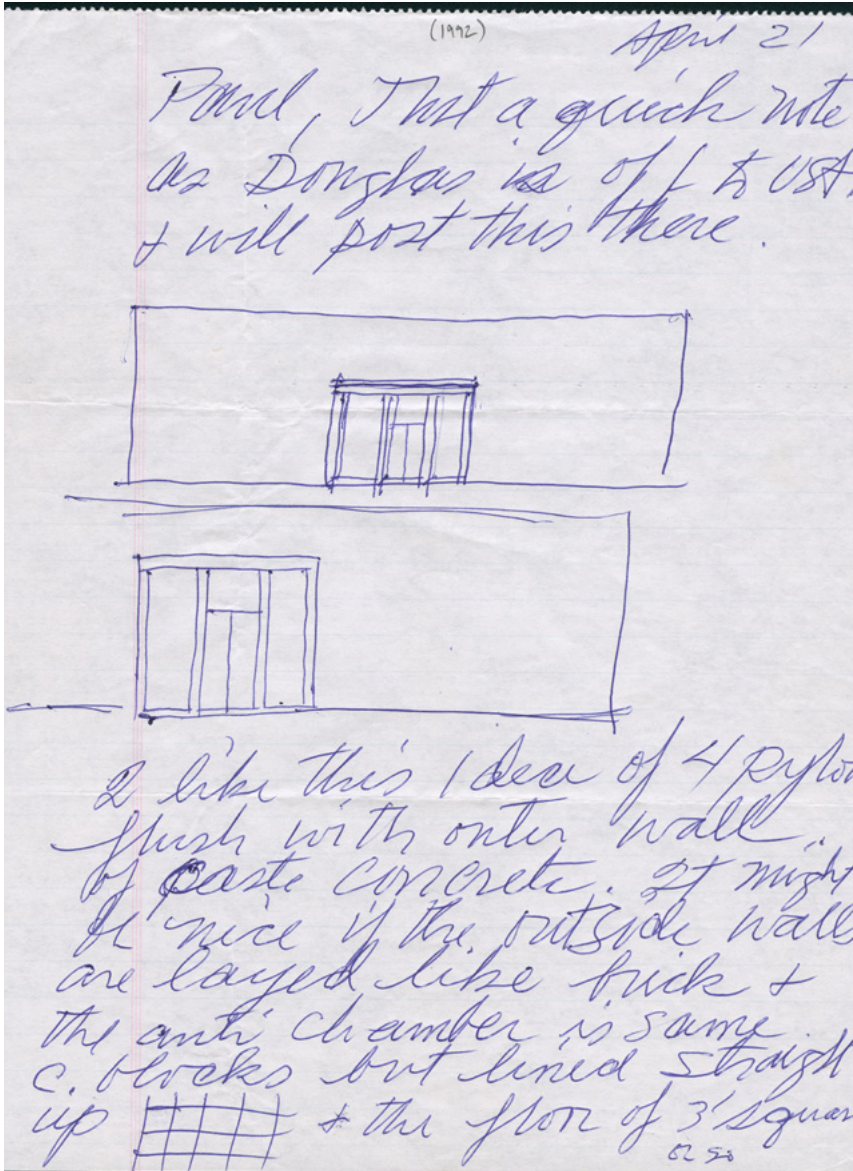 (1992)
April 21
Paul, Just a quick note
as Douglas is off to USA
& will post this there.
I like this idea of 4 pylon
flush with outer wall..
of caste concrete. It might
be nice if the outside walls
are layed like brick &
the anti chamber is same
c. blocks but lined straight
up & the floor of 3' squar
or so